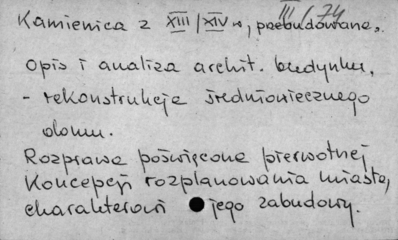 III/74
Kamienica z XIII/XIV w, przebudowana,
opis i analiza archit. budynku,
- rekonstrukcja średniowiecznego
domu.
Rozprawa poświęcona pierwotnej
Koncepcji rozplanowania miasta,
charakterowi jego zabudowy.